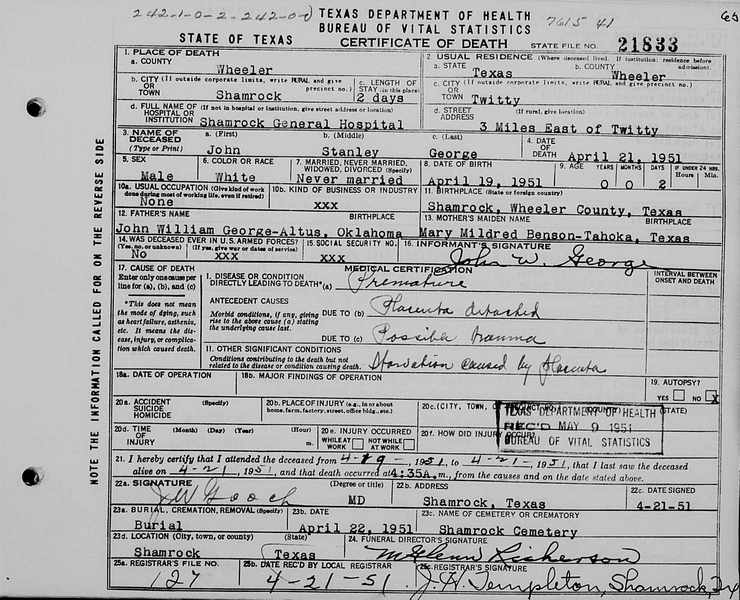 242-1-0-2-242-0-0
TEXAS DEPARTMENT OF HEALTH
7615 41
BUREAU OF VITAL STATISTICS
STATE OF TEXAS
CERTIFICATE OF DEATH
STATE FILE NO. 21833
1. PLACE OF DEATH
a. COUNTY
Wheeler
2. USUAL RESIDENCE (Where deceased lived. If institution: residence before admission).
a. STATE
Texas
b. COUNTY
Wheeler
b. CITY (If outside corporate limits, write RURAL and give precinct no.)
OR
TOWN
Shamrock
c. LENGTH OF STAY (in this place)
2 days
c. CITY (If outside corporate limits, write RURAL and give precinct no.)
OR
TOWN
Twitty
d. FULL NAME OF (If not in hospital or institution, give street address or location)
HOSPITAL OR
INSTITUTION
Shamrock General Hospital
d. STREET ADDRESS
(If rural, give location)
3 Miles East of Twitty
3. NAME OF DECEASED (Type or Print)
a. (First)
John
b. (Middle)
Stanley
c. (Last)
George
4. DATE OF DEATH
April 21, 1951
5. SEX
Male
6. COLOR OR RACE
White
7. MARRIED, NEVER MARRIED, WIDOWED, DIVORCED (Specify)
Never married
8. DATE OF BIRTH
April 19, 1951
9. AGE YEARS MONTHS DAYS
0 0 2
IF UNDER 24 HRS.
Hours Min.
10a. USUAL OCCUPATION (Give kind of work done during most of working life, even if retired)
None
10b. KIND OF BUSINESS OR INDUSTRY
xxx
11. BIRTHPLACE (State or foreign country)
Shamrock, Wheeler County, Texas
12. FATHER'S NAME BIRTHPLACE
John William George-Altus, Oklahoma
13. MOTHER'S MAIDEN NAME BIRTHPLACE
Mary Mildred Benson-Tahoka, Texas
14. WAS DECEASED EVER IN U.S. ARMED FORCES?
(Yes, no, or unknown) (If yes, give war or dates of service)
No xxx
15. SOCIAL SECURITY NO.
xxx
16. INFORMANT'S SIGNATURE
John W. George
17. CAUSE OF DEATH
Enter only one cause per line for (a), (b), and (c)
*This does not mean the mode of dying, such as heart failure, asthenia, etc. It means the disease, injury, or complication which caused death.
MEDICAL CERTIFICATION
INTERVAL BETWEEN ONSET AND DEATH
I. DISEASE OR CONDITION
DIRECTLY LEADING TO DEATH*(a)
Premature
ANTECEDENT CAUSES
Morbid conditions, if any, giving rise to the above cause (a) stating the underlying cause last.
DUE TO (b)
Placenta detached
DUE TO (c)
Possible trauma
11. OTHER SIGNIFICANT CONDITIONS
Conditions contributing to the death but not related to the disease or condition causing death.
Starvation caused by Placenta
18a. DATE OF OPERATION
18b. MAJOR FINDINGS OF OPERATION
19. AUTOPSY?
YES NO X
20a. ACCIDENT (Specify)
SUICIDE
HOMICIDE
20b. PLACE OF INJURY (e.g., in or about home, farm, factory, street, office bldg., etc.)
20c. (CITY, TOWN, (COUNTY) (STATE)
20d. TIME OF INJURY
(Month) (Day) (Year) (Hour)
m.
20e. INJURY OCCURRED
WHILE AT WORK NOT WHILE AT WORK
20f. HOW DID INJURY OCCUR?
TEXAS DEPARTMENT OF HEALTH
REC'D MAY 9 1951
BUREAU OF VITAL STATISTICS
21. I hereby certify that I attended the deceased from 4-19-, 1951, to 4-21-, 1951, that I last saw the deceased
alive on 4-21, 1951, and that death occurred at 4:35A.m., from the causes and on the date stated above.
22a. SIGNATURE (Degree or title)
JW Gooch MD
22b. ADDRESS
Shamrock, Texas
22c. DATE SIGNED
4-21-51
23a. BURIAL, CREMATION, REMOVAL (Specify)
Burial
23b. DATE
April 22, 1951
23c. NAME OF CEMETERY OR CREMATORY
Shamrock Cemetery
23d. LOCATION (City, town, or county) (State)
Shamrock Texas
24. FUNERAL DIRECTOR'S SIGNATURE
25a. REGISTRAR'S FILE NO.
127
25b. DATE REC'D BY LOCAL REGISTRAR
4-21-51
25c. REGISTRAR'S SIGNATURE
J. H. Templeton, Shamrock, Tx
NOTE THE INFORMATION CALLED FOR ON THE REVERSE SIDE